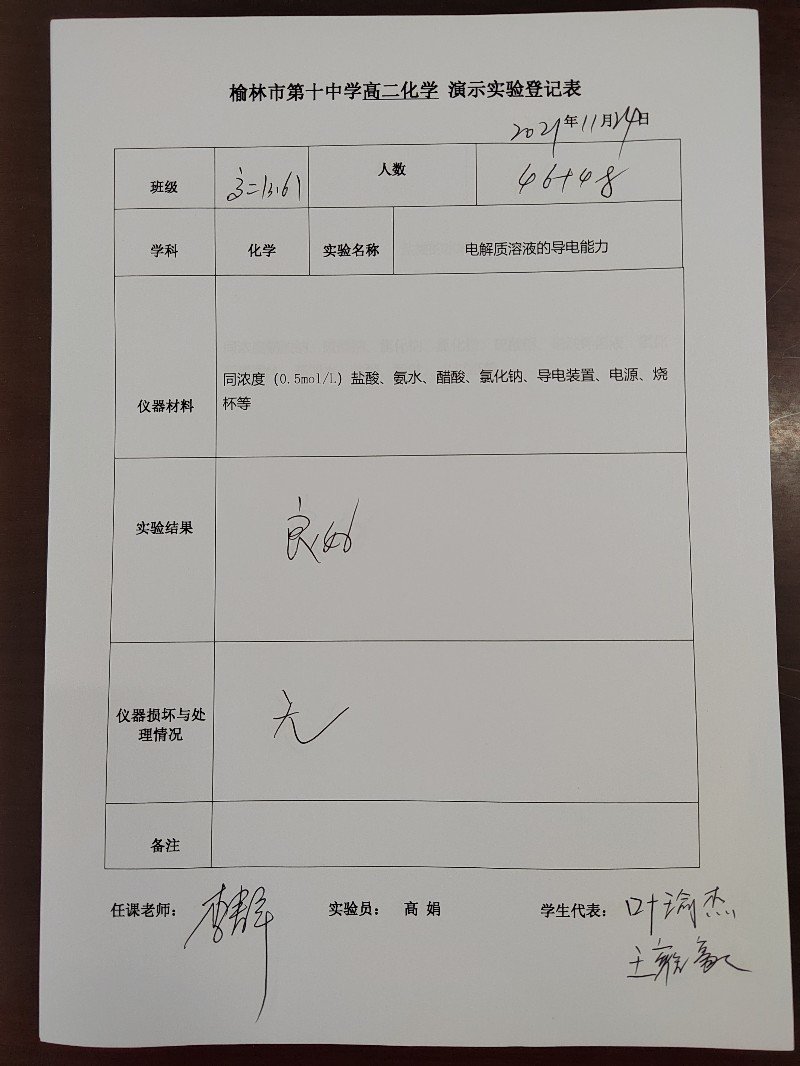 榆林市第十中学高二化学 演示实验登记表
2021年11月24日
班级 高二13.61 人数 46+48
学科 化学 实验名称 电解质溶液的导电能力
仪器材料
同浓度（0.5mol/L）盐酸、氨水、醋酸、氯化钠、导电装置、电源、烧
杯等
实验结果 良好
仪器损坏与处
理情况
无
备注
任课老师： 李 实验员： 高 娟 学生代表： 叶瑜杰
王